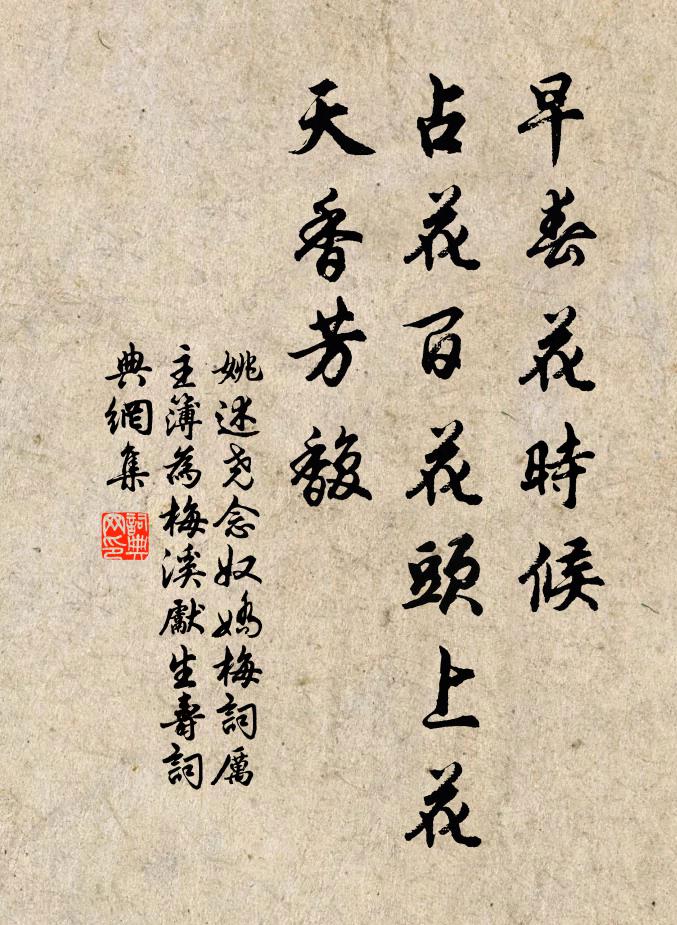 早春花時候
占花百花頭上花
天香芳馥
姚述堯念奴嬌梅詞厲
主簿為梅溪獻生壽詞
典網集
詞典網印